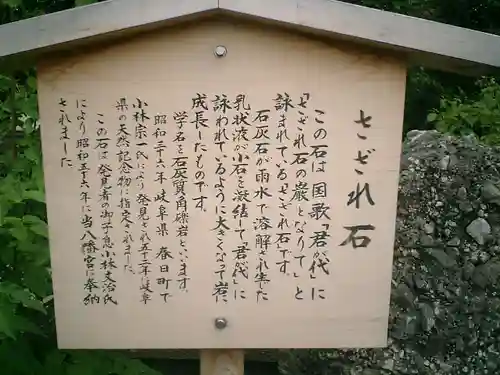 さざれ石
この石は、国歌「君が代」に
「さざれ石の巌となりて」と
詠まれているさざれ石です。
石灰石が雨水で溶解され生じた
乳状液が小石を凝結して「君が代」に
詠われているように大きくなって岩に
成長したものです。
学名を石灰質角礫岩といいます。
昭和三十六年、岐阜県春日町で
小林宗一氏により発見され五十二年に岐阜
県の天然記念物に指定されました。
この石は、発見者の御子息小林文治氏
により昭和五十六年に当八幡宮に奉納
されました。